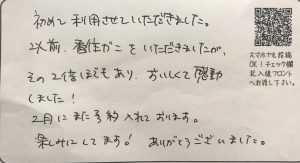 初めて利用させていただきました。
以前、香住がにをいただきましたが、
その2倍ほどもあり、おいしくて感動
しました!
2月にまた予約入れております。
楽しみにしてます! ありがとうございました。
スマホでも投稿
OK!チェック欄
記入後フロント
へお渡し下さい。